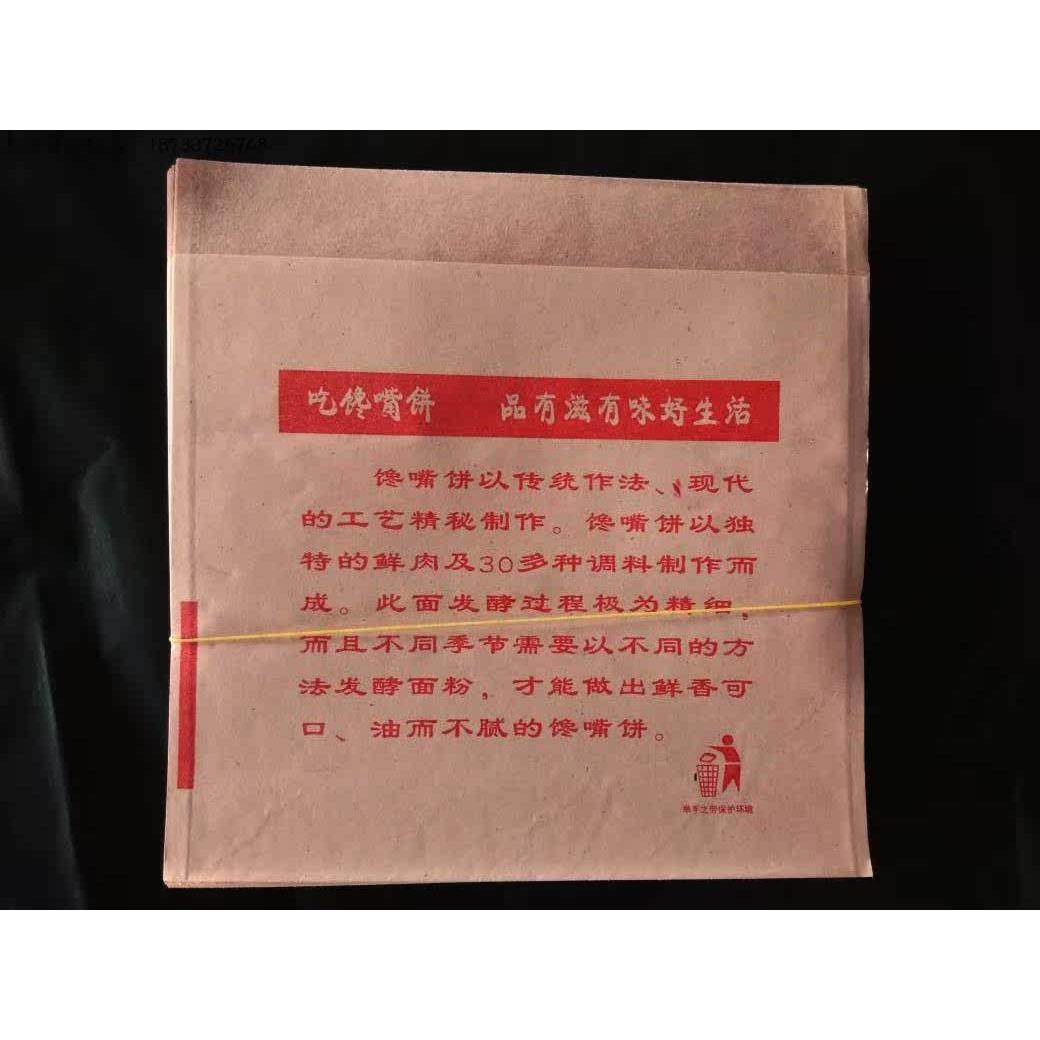 吃馋嘴饼 品有滋有味好生活
馋嘴饼以传统作法、现代
的工艺精秘制作。馋嘴饼以独
特的鲜肉及30多种调料制作而
成。此面发酵过程极为精细,
而且不同季节需要以不同的方
法发酵面粉,才能做出鲜香可
口、油而不腻的馋嘴饼。
举手之劳保护环境